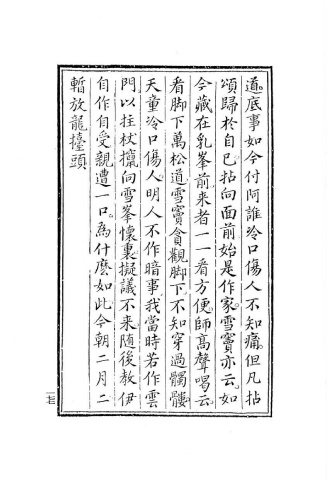 道底事如今付阿誰冷口傷人不知痛但凡拈
頌歸於自己拈向面前始是作家雪竇亦云如
今藏在乳峯前来者一一看方便師高聲喝云
看脚下萬松道雪竇貪觀脚下不知穿過髑髏
天童冷口傷人明人不作暗事我當時若作雲
門以拄杖攛向雪峯懷裏擬議不来随後教伊
自作自受親遭一口為什麽如此今朝二月二
暫放龍擡頭